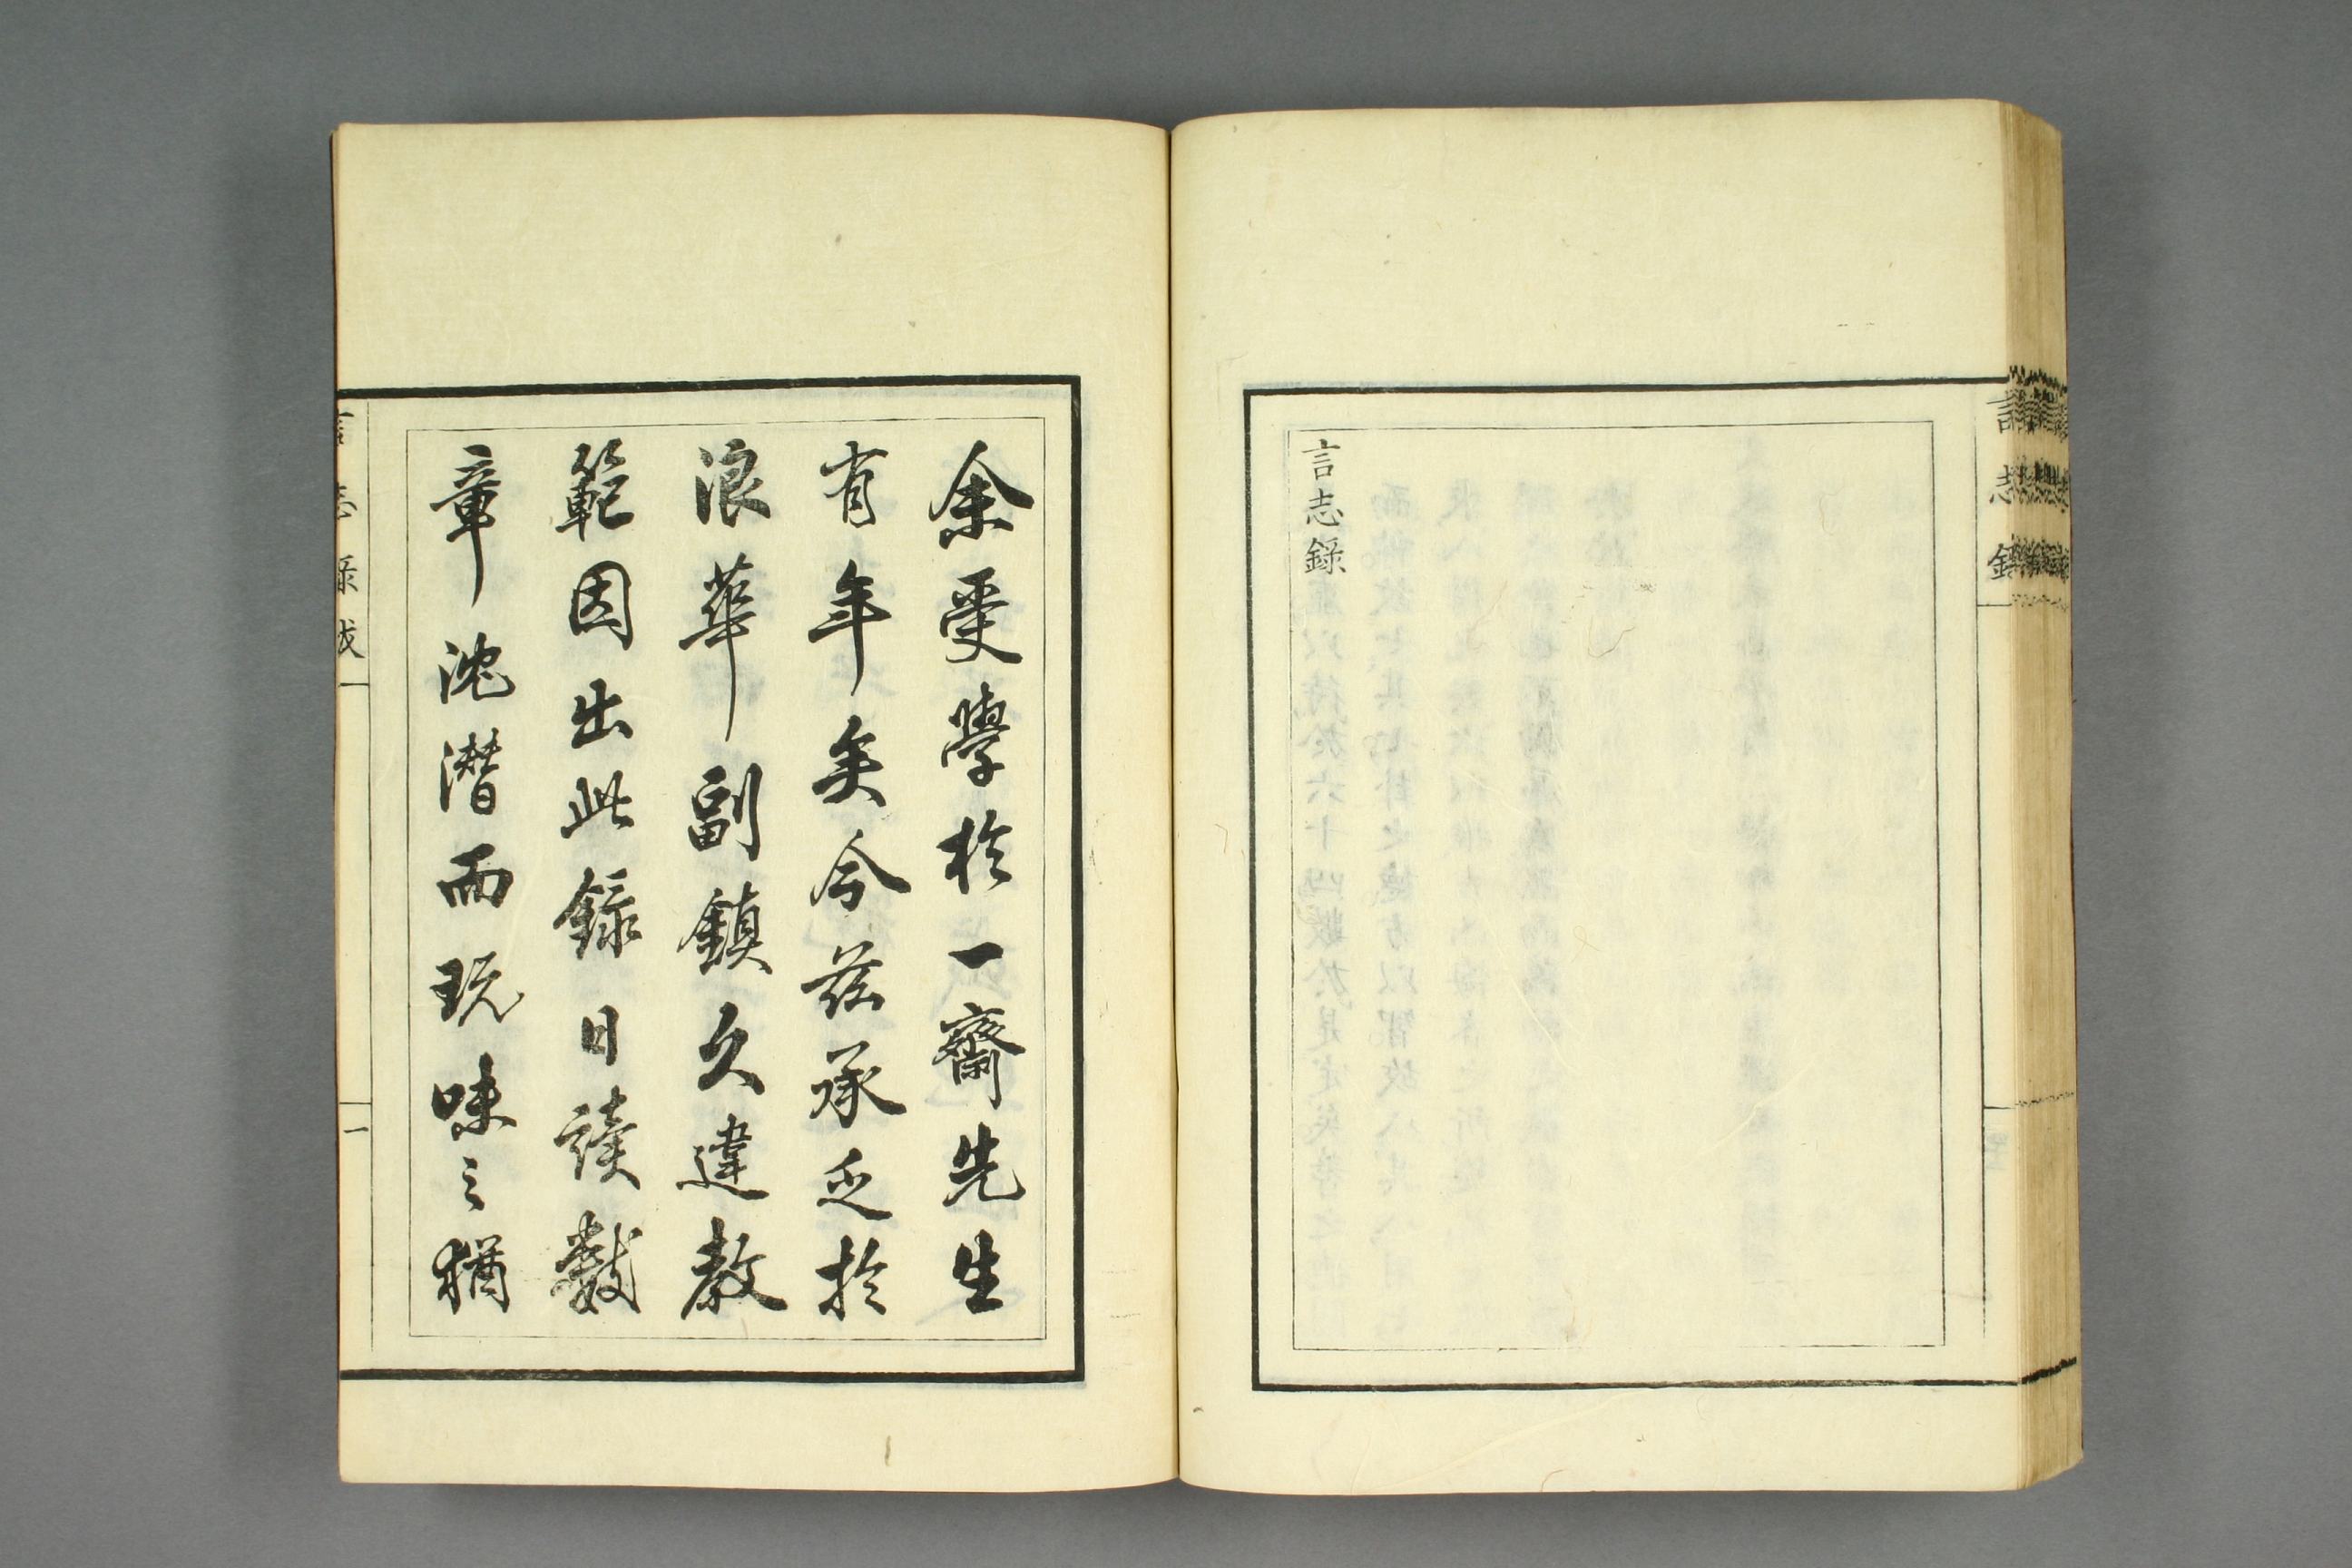 言志錄
言志錄
余受學於一齋先生
有年矣今茲承乏於
浪華副鎮久違教
範因出此錄日讀數
章沈潛而玩味之猶
言志錄跋
一